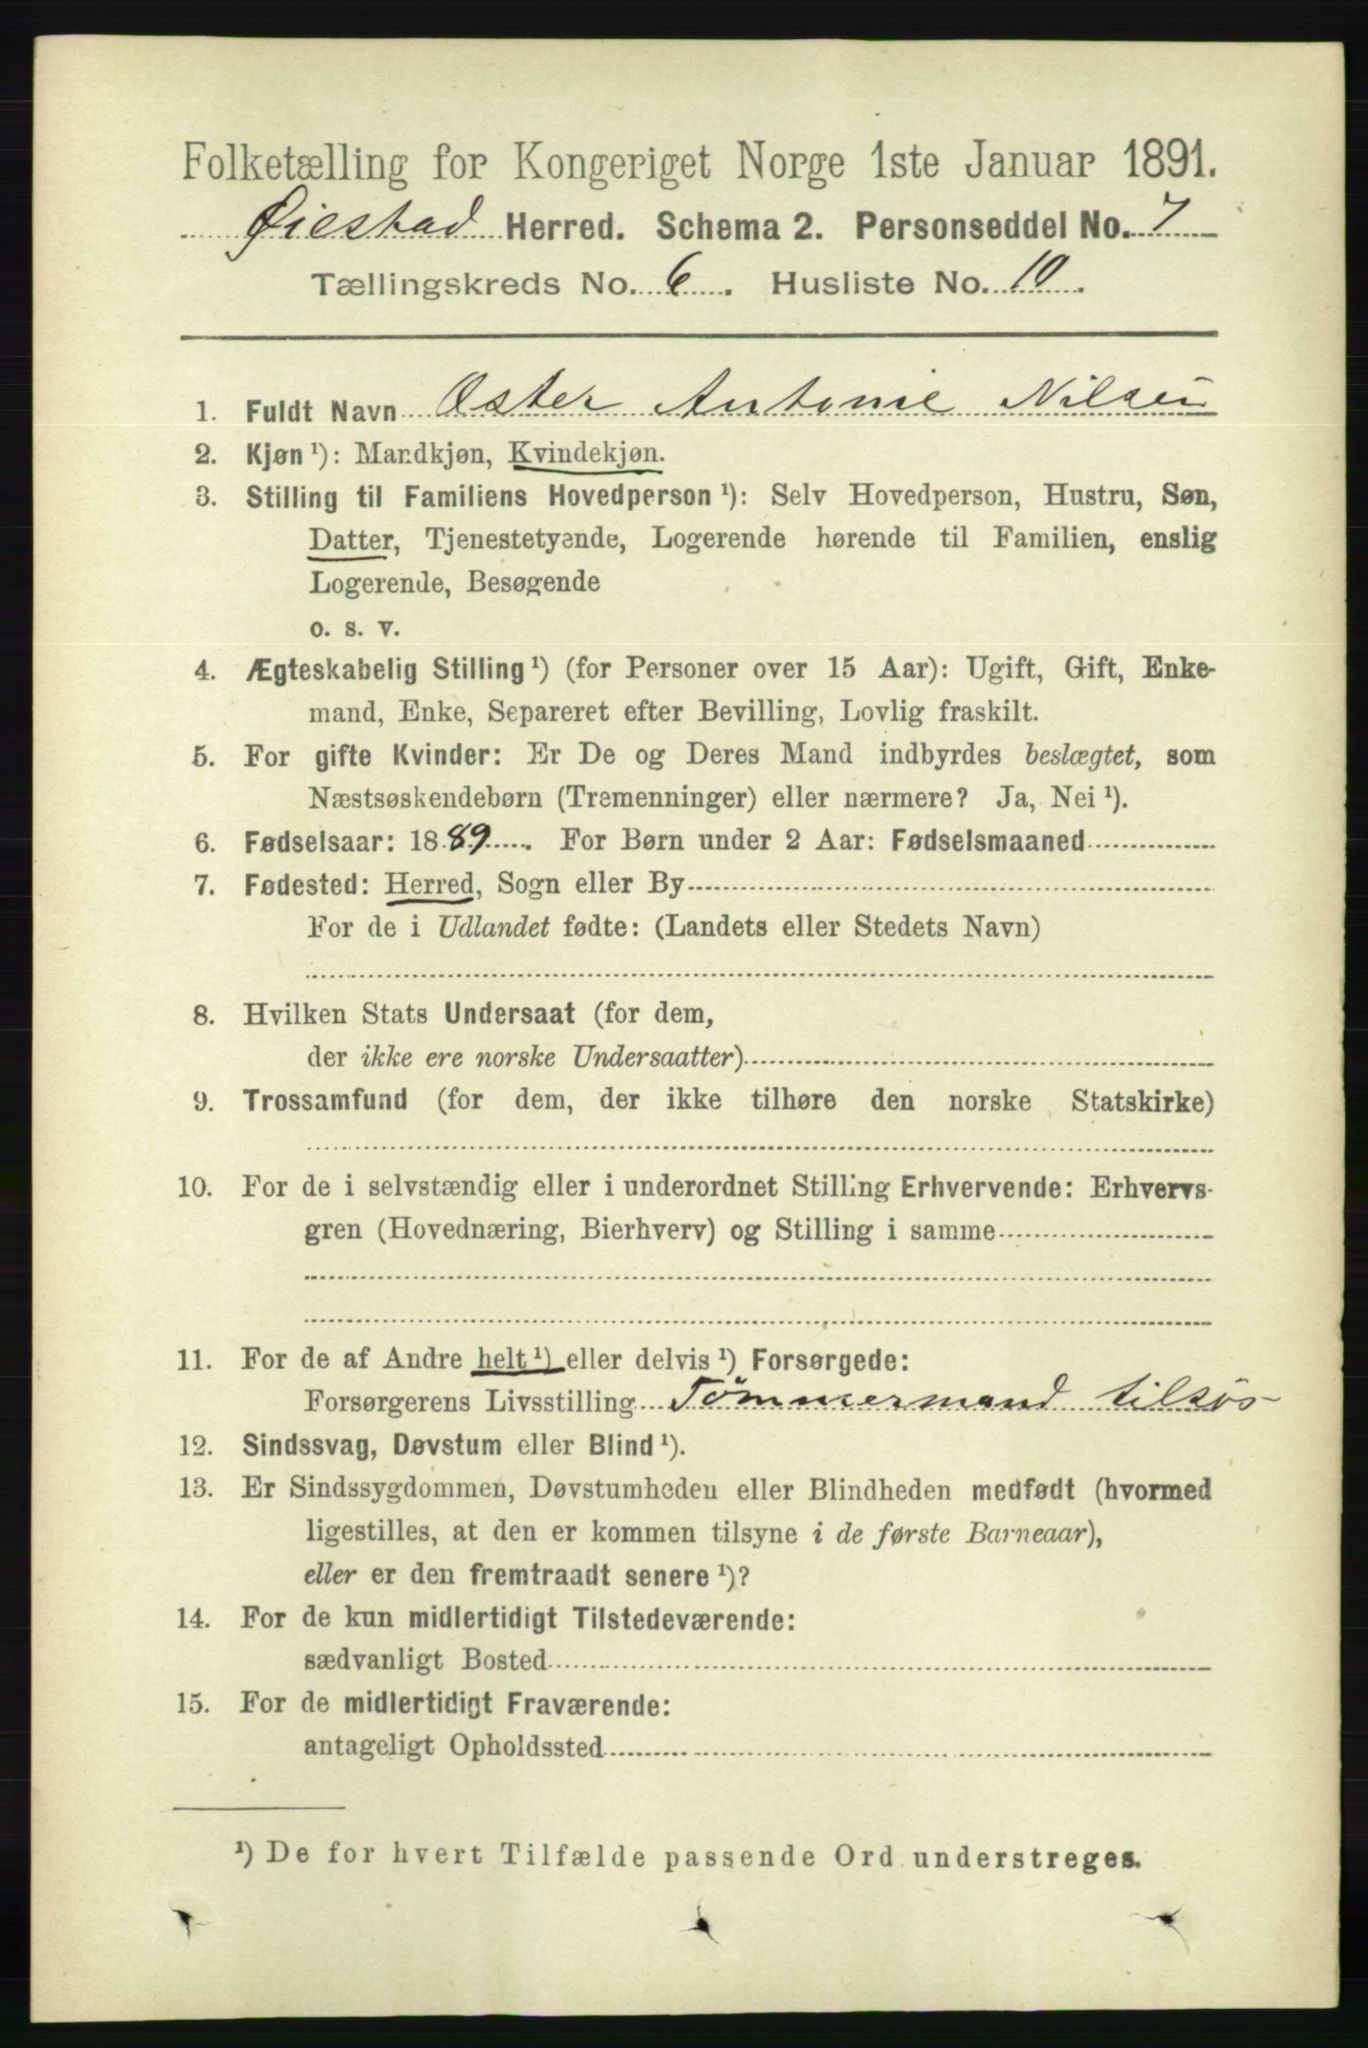 Folketælling for Kongeriget Norge 1ste Januar 1891.
Øiestad Herred. Schema 2. Personseddel No. 7
Tællingskreds No. 6. Husliste No. 10.
1. Fuldt Navn Oster Antonie Nilsen
2. Kjøn ¹): Mandkjøn, Kvindekjøn.
3. Stilling til Familiens Hovedperson ¹): Selv Hovedperson, Hustru, Søn,
Datter, Tjenestetyende, Logerende hørende til Familien, enslig
Logerende, Besøgende
o. s. v.
4. Ægteskabelig Stilling ¹) (for Personer over 15 Aar): Ugift, Gift, Enke-
mand, Enke, Separeret efter Bevilling, Lovlig fraskilt.
5. For gifte Kvinder: Er De og Deres Mand indbyrdes beslægtet, som
Næstsøskendebørn (Tremenninger) eller nærmere? Ja, Nei ¹).
6. Fødselsaar: 1889. For Børn under 2 Aar: Fødselsmaaned
7. Fødested: Herred, Sogn eller By
For de i Udlandet fødte: (Landets eller Stedets Navn)
8. Hvilken Stats Undersaat (for dem,
der ikke ere norske Undersaatter)
9. Trossamfund (for dem, der ikke tilhøre den norske Statskirke)
10. For de i selvstændig eller i underordnet Stilling Erhvervende: Erhvervs-
gren (Hovednæring, Bierhverv) og Stilling i samme
11. For de af Andre helt ¹) eller delvis ¹) Forsørgede:
Forsørgerens Livsstilling Tømmermand tilsøs
12. Sindssvag, Døvstum eller Blind ¹).
13. Er Sindssygdommen, Døvstumheden eller Blindheden medfødt (hvormed
ligestilles, at den er kommen tilsyne i de første Barneaar),
eller er den fremtraadt senere ¹)?
14. For de kun midlertidigt Tilstedeværende:
sædvanligt Bosted
15. For de midlertidigt Fraværende:
antageligt Opholdssted
¹) De for hvert Tilfælde passende Ord understreges.